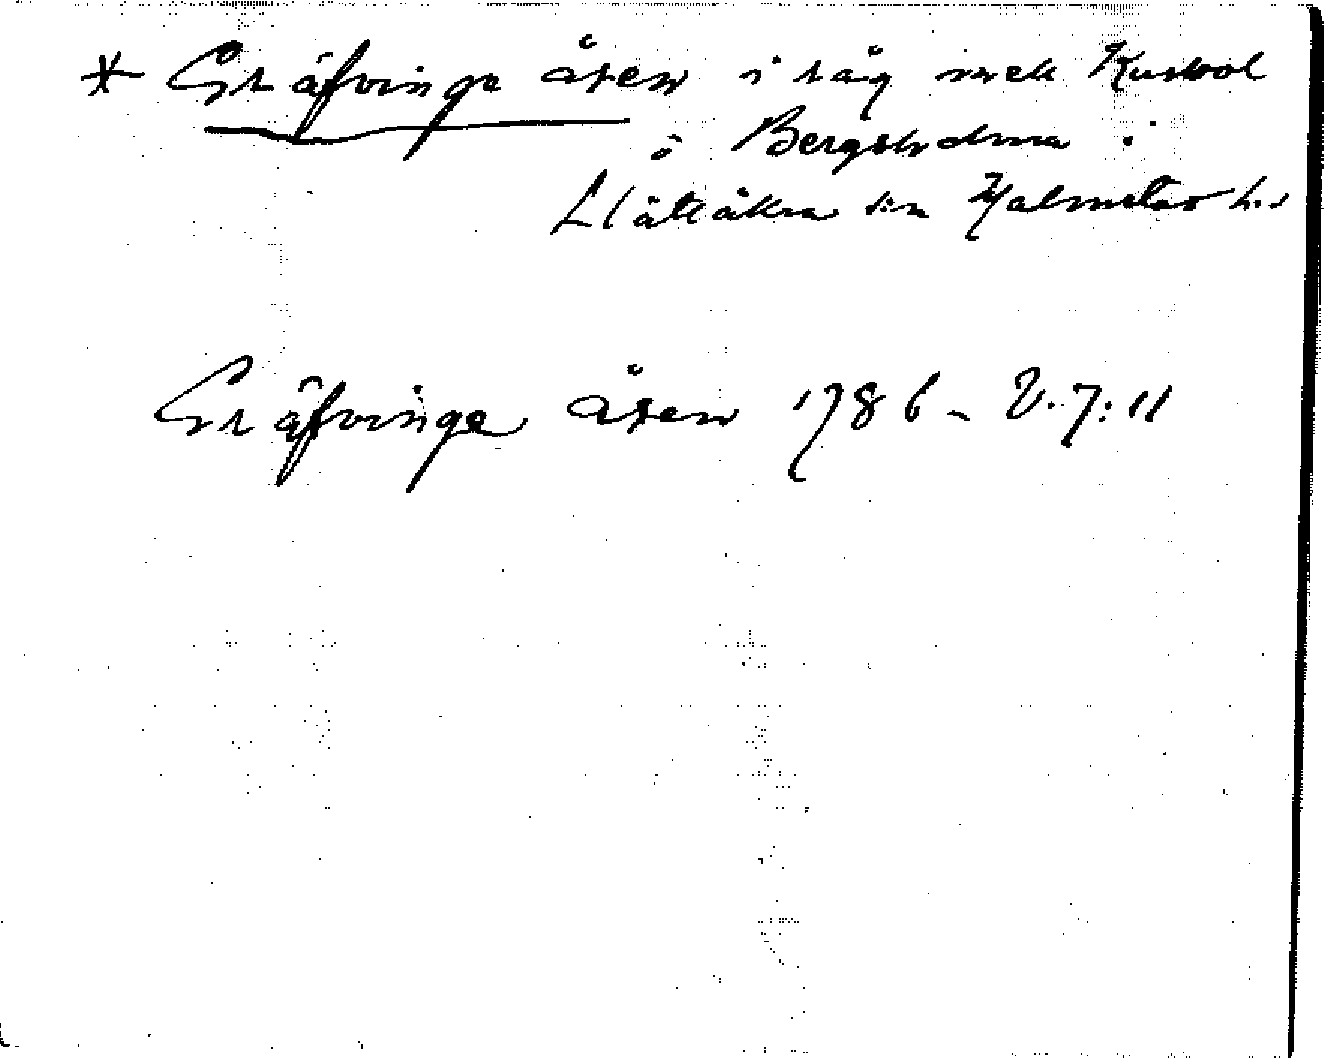 * Gräfvinge åsen i väg med Kusbol
ö Bergsholma i
Slättåkra sn Halmstad h.d
Gräfvinge åsen 1786 - V. 7: 11